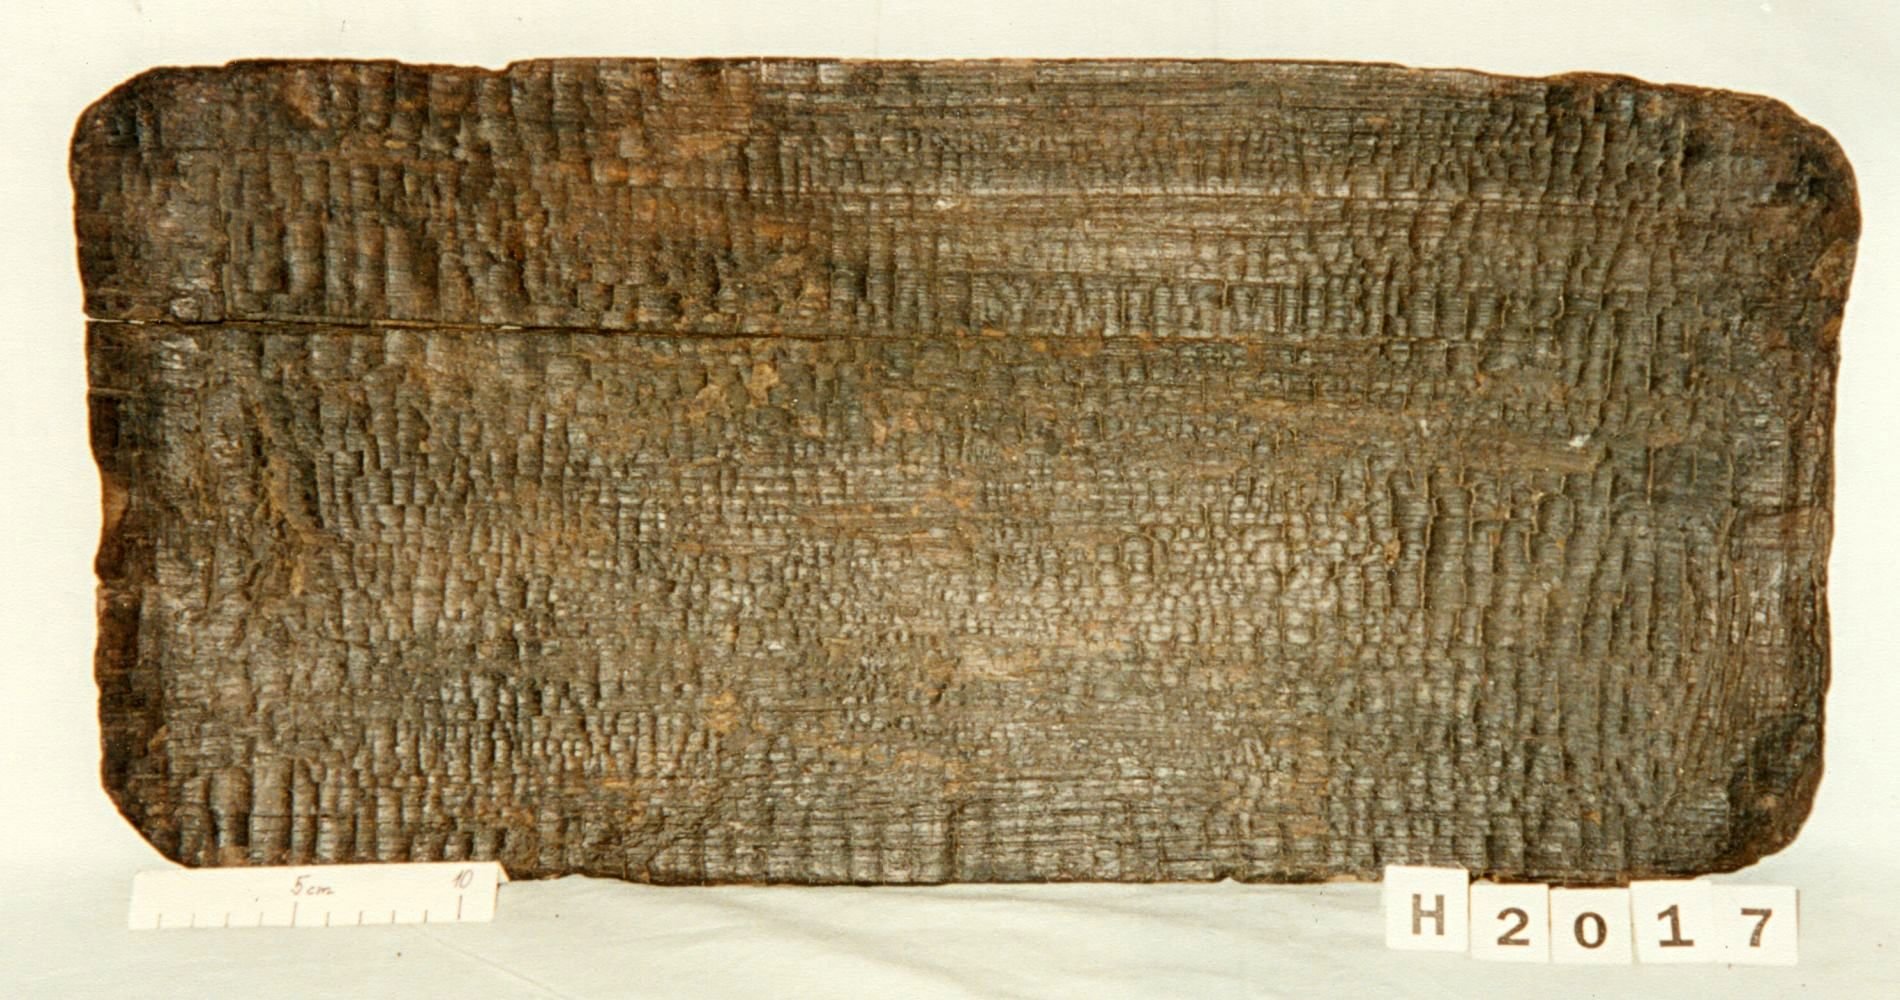 5cm 10
H 2 0 1 7